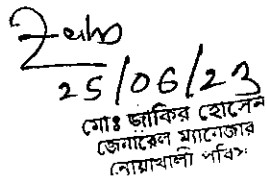 25/06/23
মোঃ জাকির হোসেন
জেনারেল ম্যানেজার
নোয়াখালী পবিস